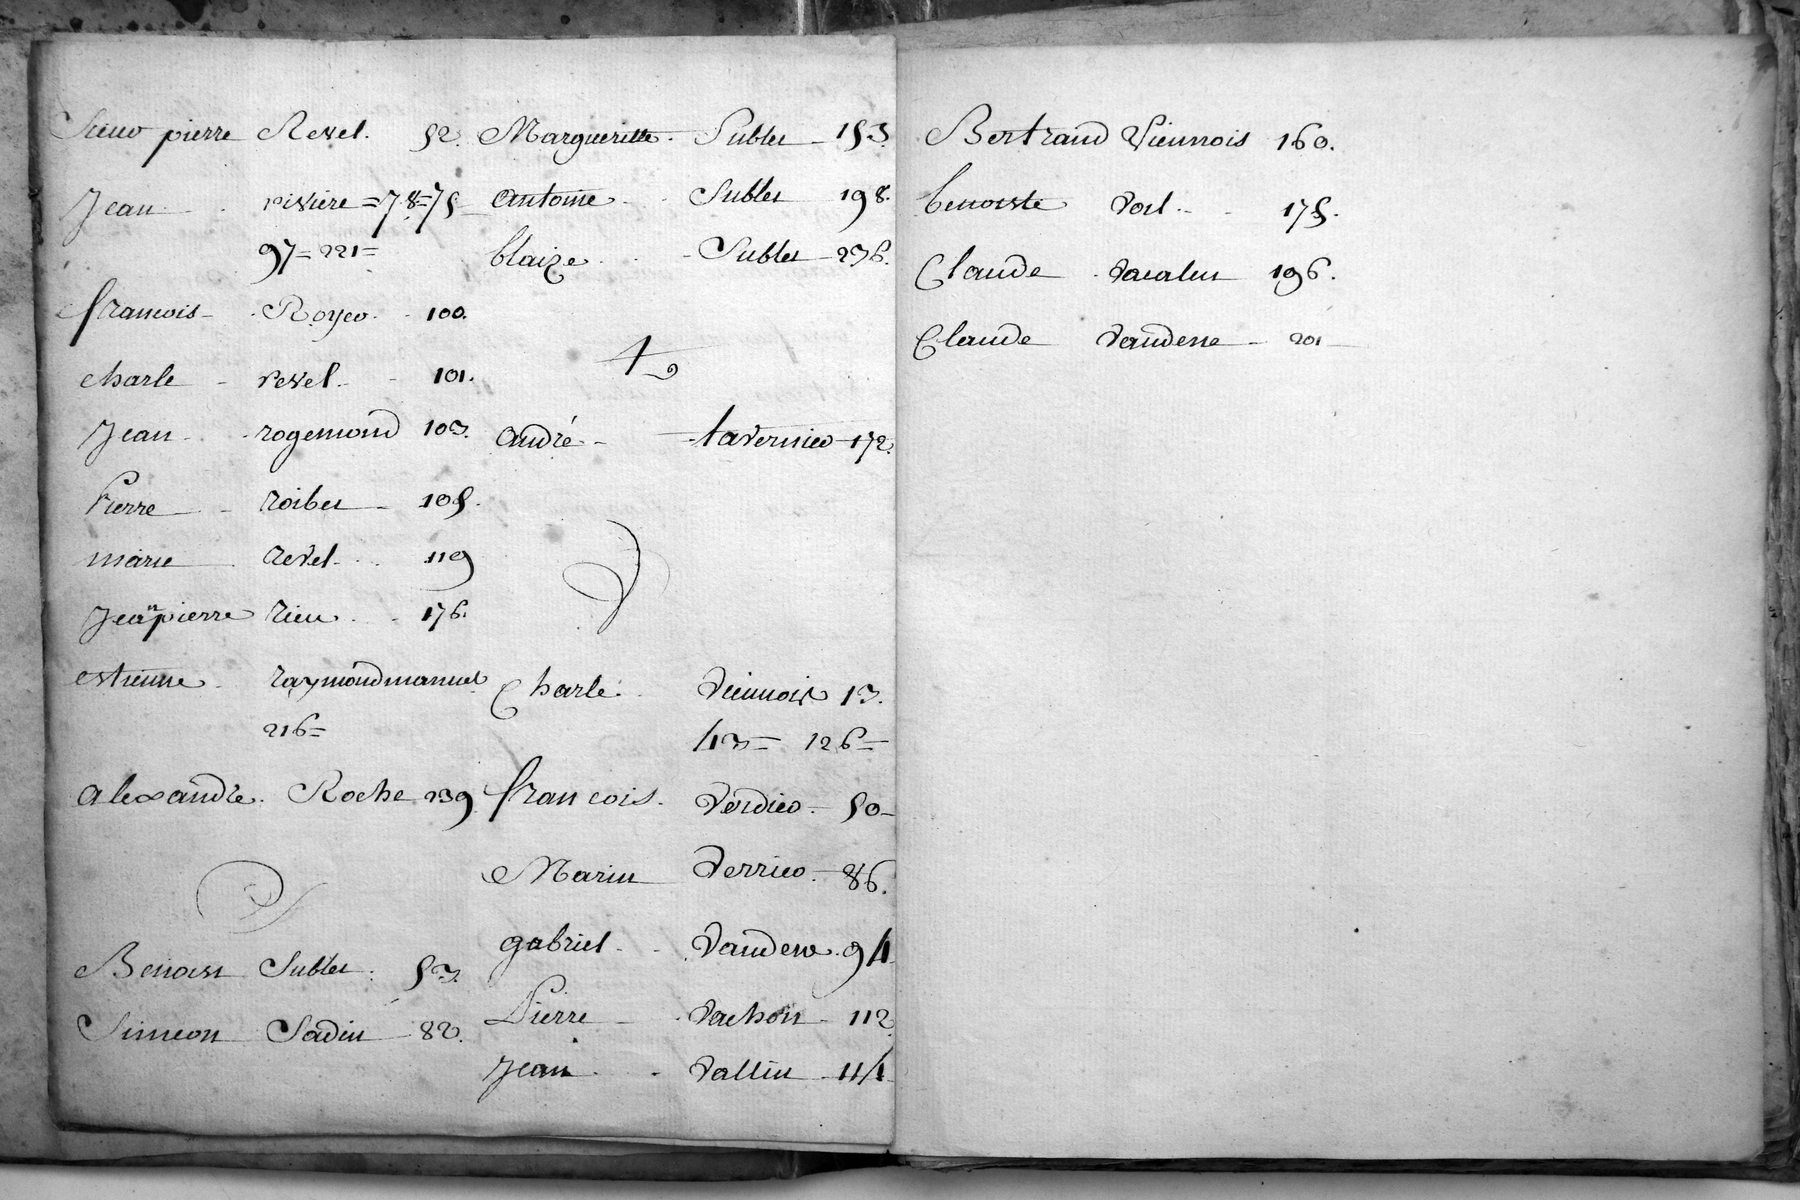 Sieur pierre Revel. 52.
Jean rivière = 78 = 75
97 = 221 =
francois Royer 100.
charle revel. 101.
Jean rogemond 103.
Pierre roibet 105.
marie Revel 119
Jean pierre rieu 176.
estienne raymondmanuel
216 =
alexandre. Roche 239
S
Benoist Sublet. 53.
Simeon Sadin 82.
Margueritte Sublet 153.
antoine Sublet 198.
blaize Sublet 236.
T
andré tavernier 172.
V
Charle Viennois 13.
43 = 126 =
francois. Verdier 50
Marin Verrier 86.
gabriel Vandere 94
Pierre Vachon 112
Jean Vallin 114
Bertrand Viennois 160.
benoiste 175.
Claude 196.
Claude Vandene 201